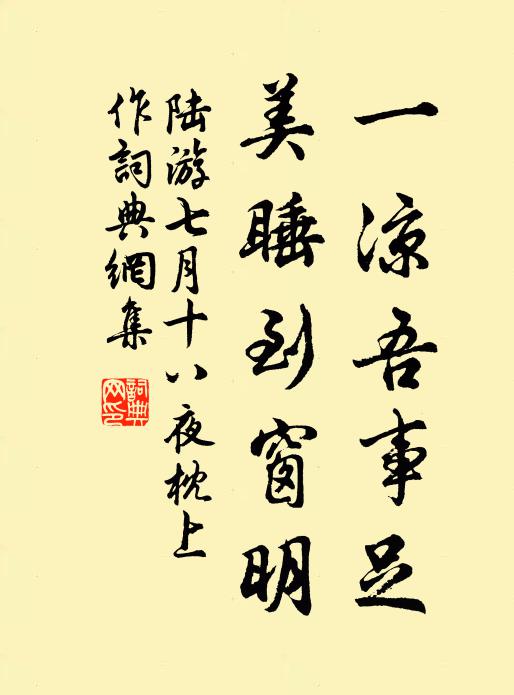 一涼吾事足
美睡到窗明
陆游七月十八夜枕上
作詞典網集
詞典
网印